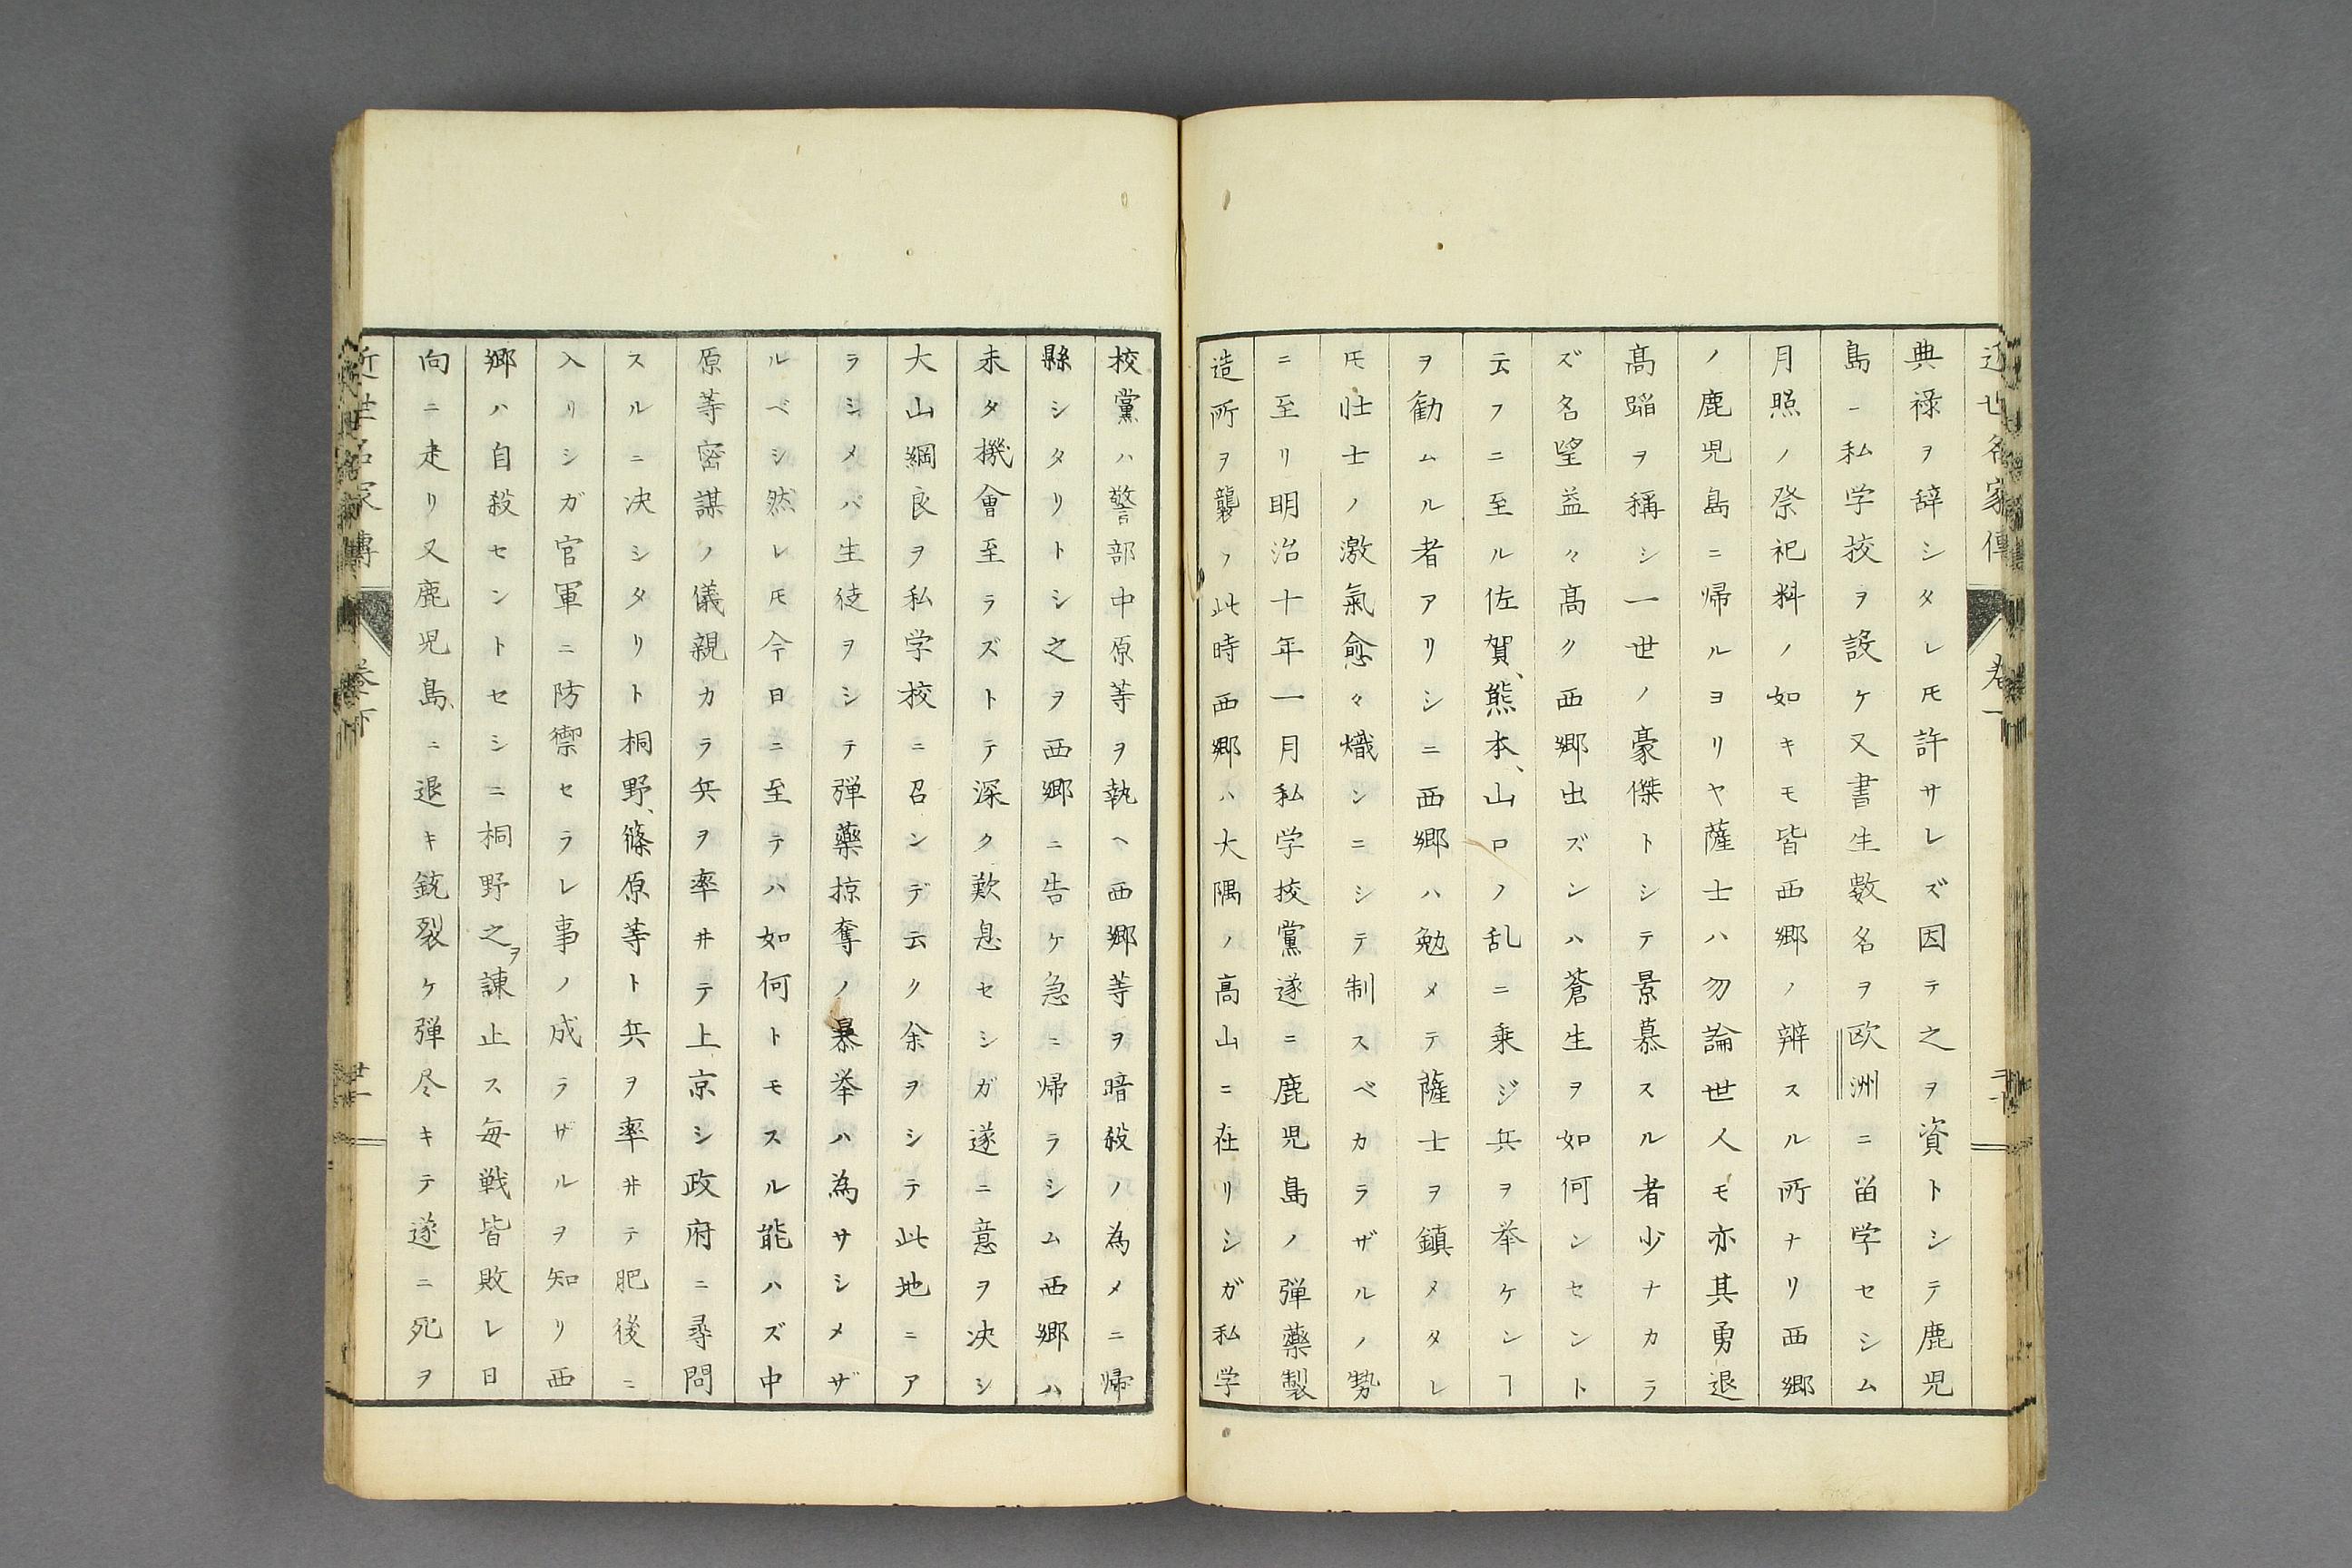 近世名家傳
卷一
典祿ヲ辞シタレ𪜈許サレズ因テ之ヲ資トシテ鹿児
島ニ私学挍ヲ設ケ又書生數名ヲ欧洲ニ畄学セシム
月照ノ祭祀料ノ如キモ皆西郷ノ辨スル所ナリ西郷
ノ鹿児島ニ帰ルヨリヤ薩士ハ勿論世人モ亦其勇退
髙蹈ヲ稱シ一世ノ豪傑トシテ景慕スル者少ナカラ
ズ名望益々髙ク西郷出ズンハ蒼生ヲ如何ンセント
云フニ至ル佐賀、熊本、山口ノ乱ニ乗ジ兵ヲ挙ケンヿ
ヲ勧ムル者アリシニ西郷ハ勉メテ薩士ヲ鎮メタレ
𪜈壮士ノ激氣愈々熾ンニシテ制スベカラザルノ勢
ニ至リ明治十年一月私学挍黨遂ニ鹿児島ノ弾藥製
造所ヲ襲フ此時西郷ハ大隅ノ髙山ニ在リシガ私学
校黨ハ警部中原等ヲ執ヘ西郷等ヲ暗殺ノ為メニ帰
縣シタリトシ之ヲ西郷ニ告ケ急ニ帰ラシム西郷ハ
未タ機會至ラズトテ深ク歎息セシガ遂ニ意ヲ决シ
大山綱良ヲ私学校ニ召ンデ云ク余ヲシテ此地ニア
ラシメバ生徒ヲシテ弾藥掠奪ノ暴挙ハ為サシメザ
ルベシ然レ𪜈今日ニ至テハ如何トモスル能ハズ中
原等密謀ノ儀親カラ兵ヲ率ヰテ上京シ政府ニ尋問
スルニ决シタリト桐野、篠原等ト兵ヲ率ヰテ肥後ニ
入リシガ官軍ニ防禦セラレ事ノ成ラザルヲ知リ西
郷ハ自殺セントセシニ桐野之ヲ諌止ス毎戦皆敗レ日
向ニ走リ又鹿児島ニ退キ銃裂ケ弾尽キテ遂ニ死ヲ
近世名家傳
卷下